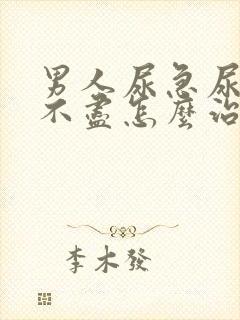 男人尿急尿
不盡怎麼治
李木發